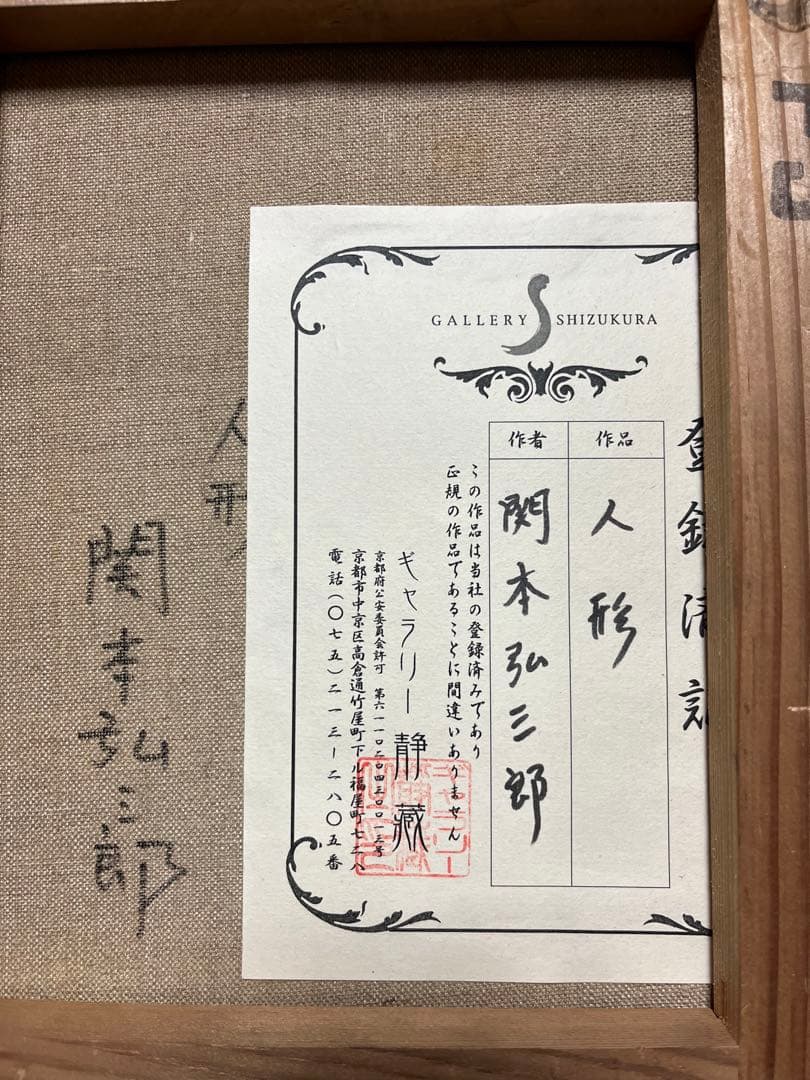 GALLERY SHIZUKURA
登録済証
作品
人形
作者
関本弘三郎
この作品は当社の登録済みであり
正規の作品であることに間違いありません
ギャラリー 静藏
京都府公安委員会許可 第六一一〇二〇四三〇〇一三号
京都市中京区高倉通竹屋町下ル福屋町七二八
電話(〇七五)二一三ー二八〇五番
人形
関本弘三郎